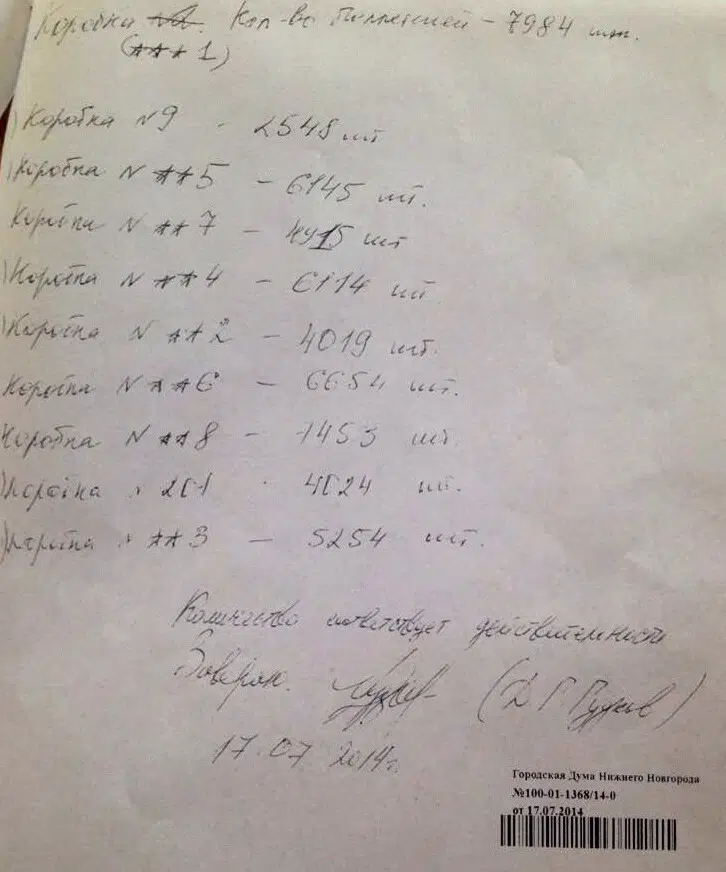 Коробка Кол-во бюллетеней - 7984 шт.
(***1)
Коробка N9 - 2548 шт
Коробка N **5 - 6145 шт.
Коробка N **7 - шт
Коробка N **4 - 6114 шт.
Коробка N **2 - 4019 шт.
Коробка N **6 - 6654 шт.
Коробка N **8 - 1453 шт.
Коробка 201 4024 шт.
Коробка **3 - 5254 шт.
Количество соответствует действительности
(Д Г )
17.07 2014г.
Городская Дума Нижнего Новгорода
№100-01-1368/14-0
от 17.07.2014